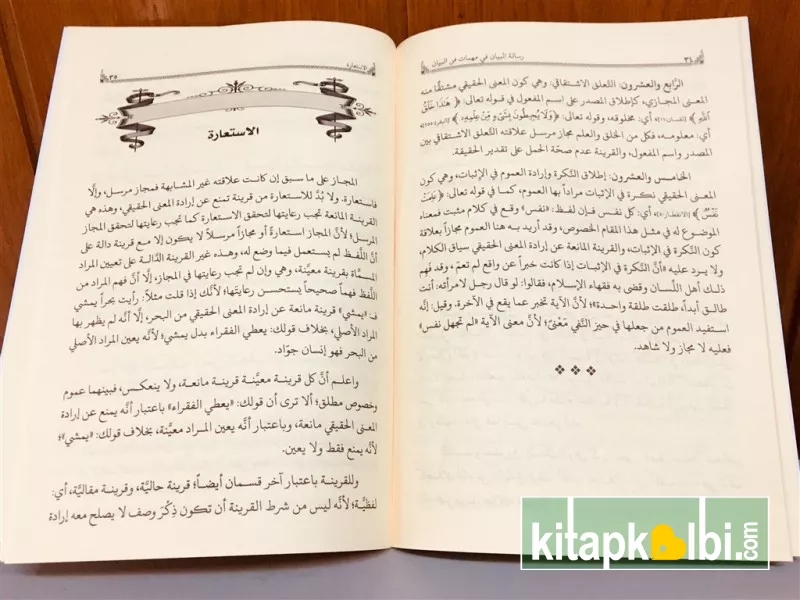 ٣٤
رسالة البيان في مهمات فن البيان
الرَّابع والعشرون: التعلق الاشتقاقي: وهي كون المعنى الحقيقي مشتقًّا منه
المعنى المجازي، كإطلاق المصدر على اسم المفعول في قوله تعالى: ﴿هَٰذَا خَلْقُ
اللَّهِ﴾ [لقمان: ١١] أي: مخلوقه، وقوله تعالى: ﴿وَلَا يُحِيطُونَ بِشَيْءٍ مِّنْ عِلْمِهِ﴾ [البقرة: ٢٥٥]
أي: معلومه، فكل من الخلق والعلم مجاز مرسل علاقته التعلق الاشتقاقي بين
المصدر واسم المفعول، والقرينة عدم صحة الحمل على تقدير الحقيقة.
الخامس والعشرون: إطلاق النَّكرة وإرادة العموم في الإثبات، وهي كون
المعنى الحقيقي نكرة في الإثبات مراداً بها العموم، كما في قوله تعالى: ﴿عَلِمَتْ
نَفْسٌ﴾ [الانفطار: ٥] أي: كل نفس فإن لفظ: «نفس» وقع في كلام مثبت فمعناه
الموضوع له في مثل هذا المقام الخصوص، وقد أريد به هنا العموم مجازاً بعلاقة
كون النَّكرة في الإثبات، والقرينة المانعة عن إرادة المعنى الحقيقي سياق الكلام،
ولا يرد عليه «أنَّ النَّكرة في الإثبات إذا كانت خبراً عن واقع لم تعمّ، وقد فهم
ذلك أهل اللِّسان وقضى به فقهاء الإسلام، فقالوا: لو قال رجل لامرأته: أنت
طالق أبداً، طلقت طلقة واحدة»؛ لأنَّ الآية تخبر عما يقع في الآخرة. وقيل: إنَّه
استفيد العموم من جعلها في حيز النَّفي مَعْنًى؛ لأنَّ معنى الآية «لم تجهل نفس»
فعليه لا مجاز ولا شاهد.
الاستعارة
٣٥
الاستعارة
المجاز على ما سبق إن كانت علاقته غير المشابهة فمجاز مرسل، وإلَّا
فاستعارة. ولا بُدَّ للاستعارة من قرينة تمنع عن إرادة المعنى الحقيقي، وهذه هي
القرينة المانعة تجب رعايتها لتحقق الاستعارة كما تجب رعايتها لتحقق المجاز
المرسل؛ لأنَّ المجاز استعارةً أو مجازاً مرسلاً لا يكون إلا مع قرينة دالة على
أنَّ اللَّفظ لم يستعمل فيما وضع له، وهذه غير القرينة الدَّالة على تعيين المراد
المسمَّاة بقرينة معيِّنة، وهي وإن لم تجب رعايتها في المجاز، إلَّا أنَّ فهم المراد من
اللَّفظ فهماً صحيحاً يستحسن رعايتَها؛ لأنَّك إذا قلت مثلاً: رأيت بحراً يمشي
فـ«يمشي» قرينة مانعة عن إرادة المعنى الحقيقي من البحر، إلَّا أنَّه لم يظهر بها
المراد الأصلي، بخلاف قولك: يعطي الفقراء بدل يمشي؛ لأنَّه يعين المراد الأصلي
من البحر فهو إنسان جوّاد.
واعلم أنَّ كل قرينة معيِّنة قرينة مانعة، ولا ينعكس، فبينهما عموم
وخصوص مطلق؛ ألا ترى أن قولك: «يعطي الفقراء» باعتبار أنَّه يمنع عن إرادة
المعنى الحقيقي مانعة، وباعتبار أنَّه يعين المراد معيِّنة، بخلاف قولك: «يمشي»؛
لأنَّه يمنع فقط ولا يعين.
وللقرينة باعتبار آخر قسمان أيضاً: قرينة حاليَّة، وقرينة مقاليَّة، أي:
لفظيَّة؛ لأنَّه ليس من شرط القرينة أن تكون ذِكْرَ وصف لا يصلح معه إرادة
kitapkalbi.com